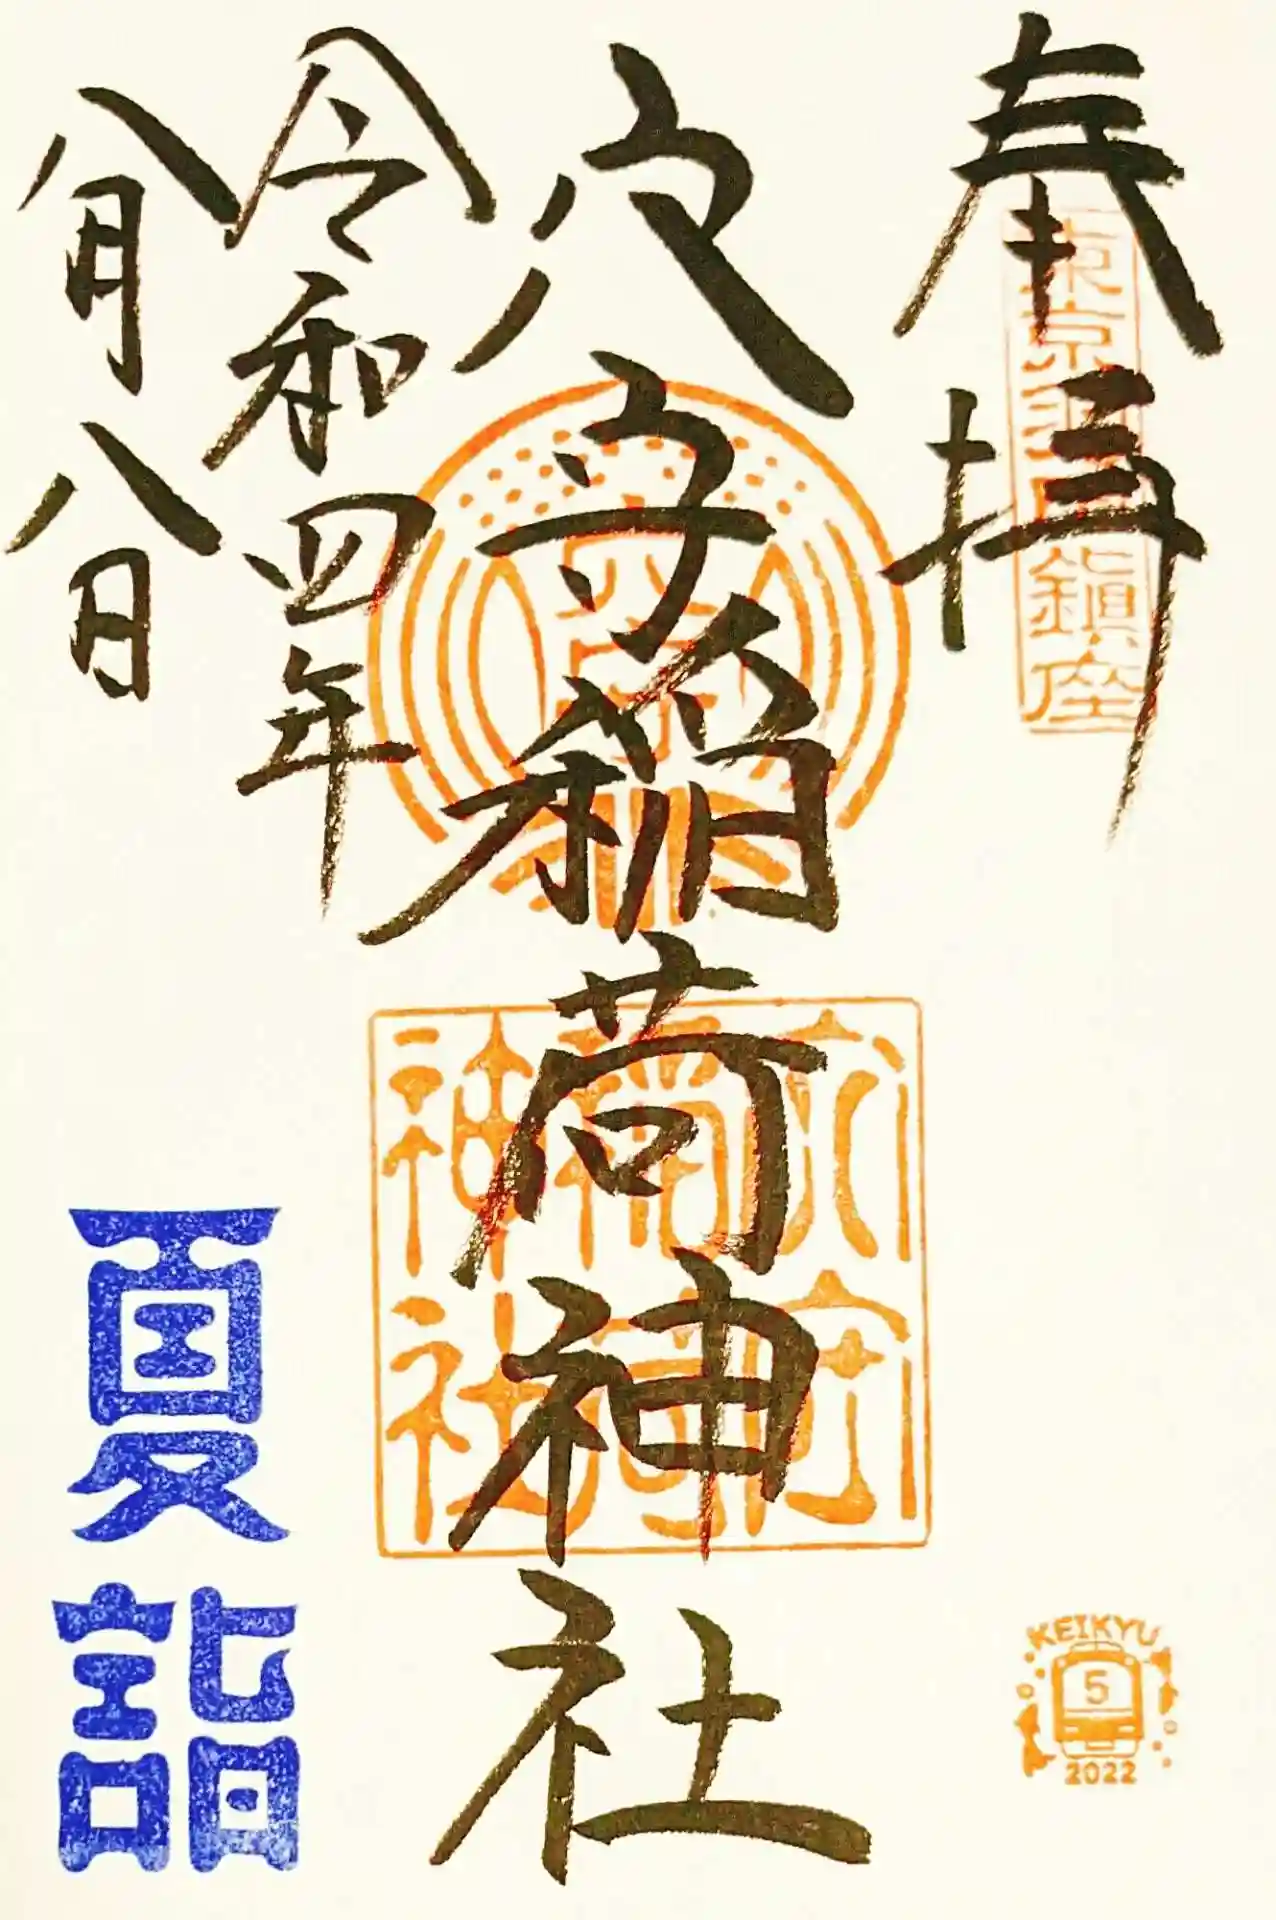 奉拝
東京羽田鎮座
穴守稲荷神社
穴守
稲荷
神社
令和四年
八月八日
夏詣
KEIKYU
5
2022